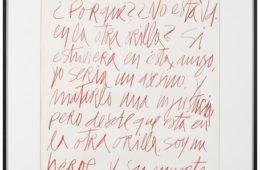 ¿Porque? ¿No está Vd.
en la otra orilla? Si
estuviera en ésta, amigo,
yo sería un asesino, y
matarlo una injusticia
pero desde que está en
la otra orilla, soy un
héroe. Y su muerte